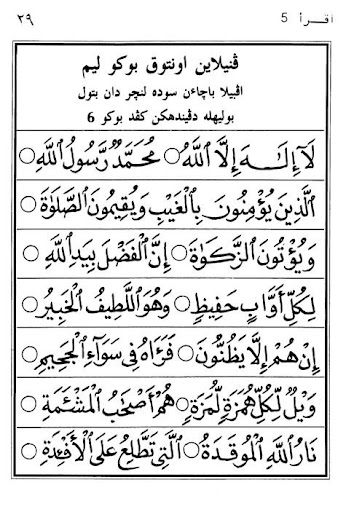 اقرأ 5
٣٩
ڤنيلاين اونتوق بوكو ليم
اڤبيلا باچاءن سوده لنچر دان بتول
بوليهله دڤيندهكن كڤد بوكو 6
لَآ إِلَـٰهَ إِلَّا ٱللَّهُ ○ مُحَمَّدٌ رَّسُولُ ٱللَّهِ ○
ٱلَّذِينَ يُؤْمِنُونَ بِٱلْغَيْبِ وَيُقِيمُونَ ٱلصَّلَوٰةَ
وَيُؤْتُونَ ٱلزَّكَوٰةَ ○ إِنَّ ٱلْفَضْلَ بِيَدِ ٱللَّهِ ○
لِكُلِّ أَوَّابٍ حَفِيظٍ ○ وَهُوَ ٱللَّطِيفُ ٱلْخَبِيرُ ○
إِنْ هُمْ إِلَّا يَظُنُّونَ ○ فَرَءَاهُ فِى سَوَآءِ ٱلْجَحِيمِ ○
وَيْلٌ لِّكُلِّ هُمَزَةٍ لُّمَزَةٍ ○ هُمْ أَصْحَـٰبُ ٱلْمَشْـَٔمَةِ ○
نَارُ ٱللَّهِ ٱلْمُوقَدَةُ ○ ٱلَّتِى تَطَّلِعُ عَلَى ٱلْأَفْـِٔدَةِ ○